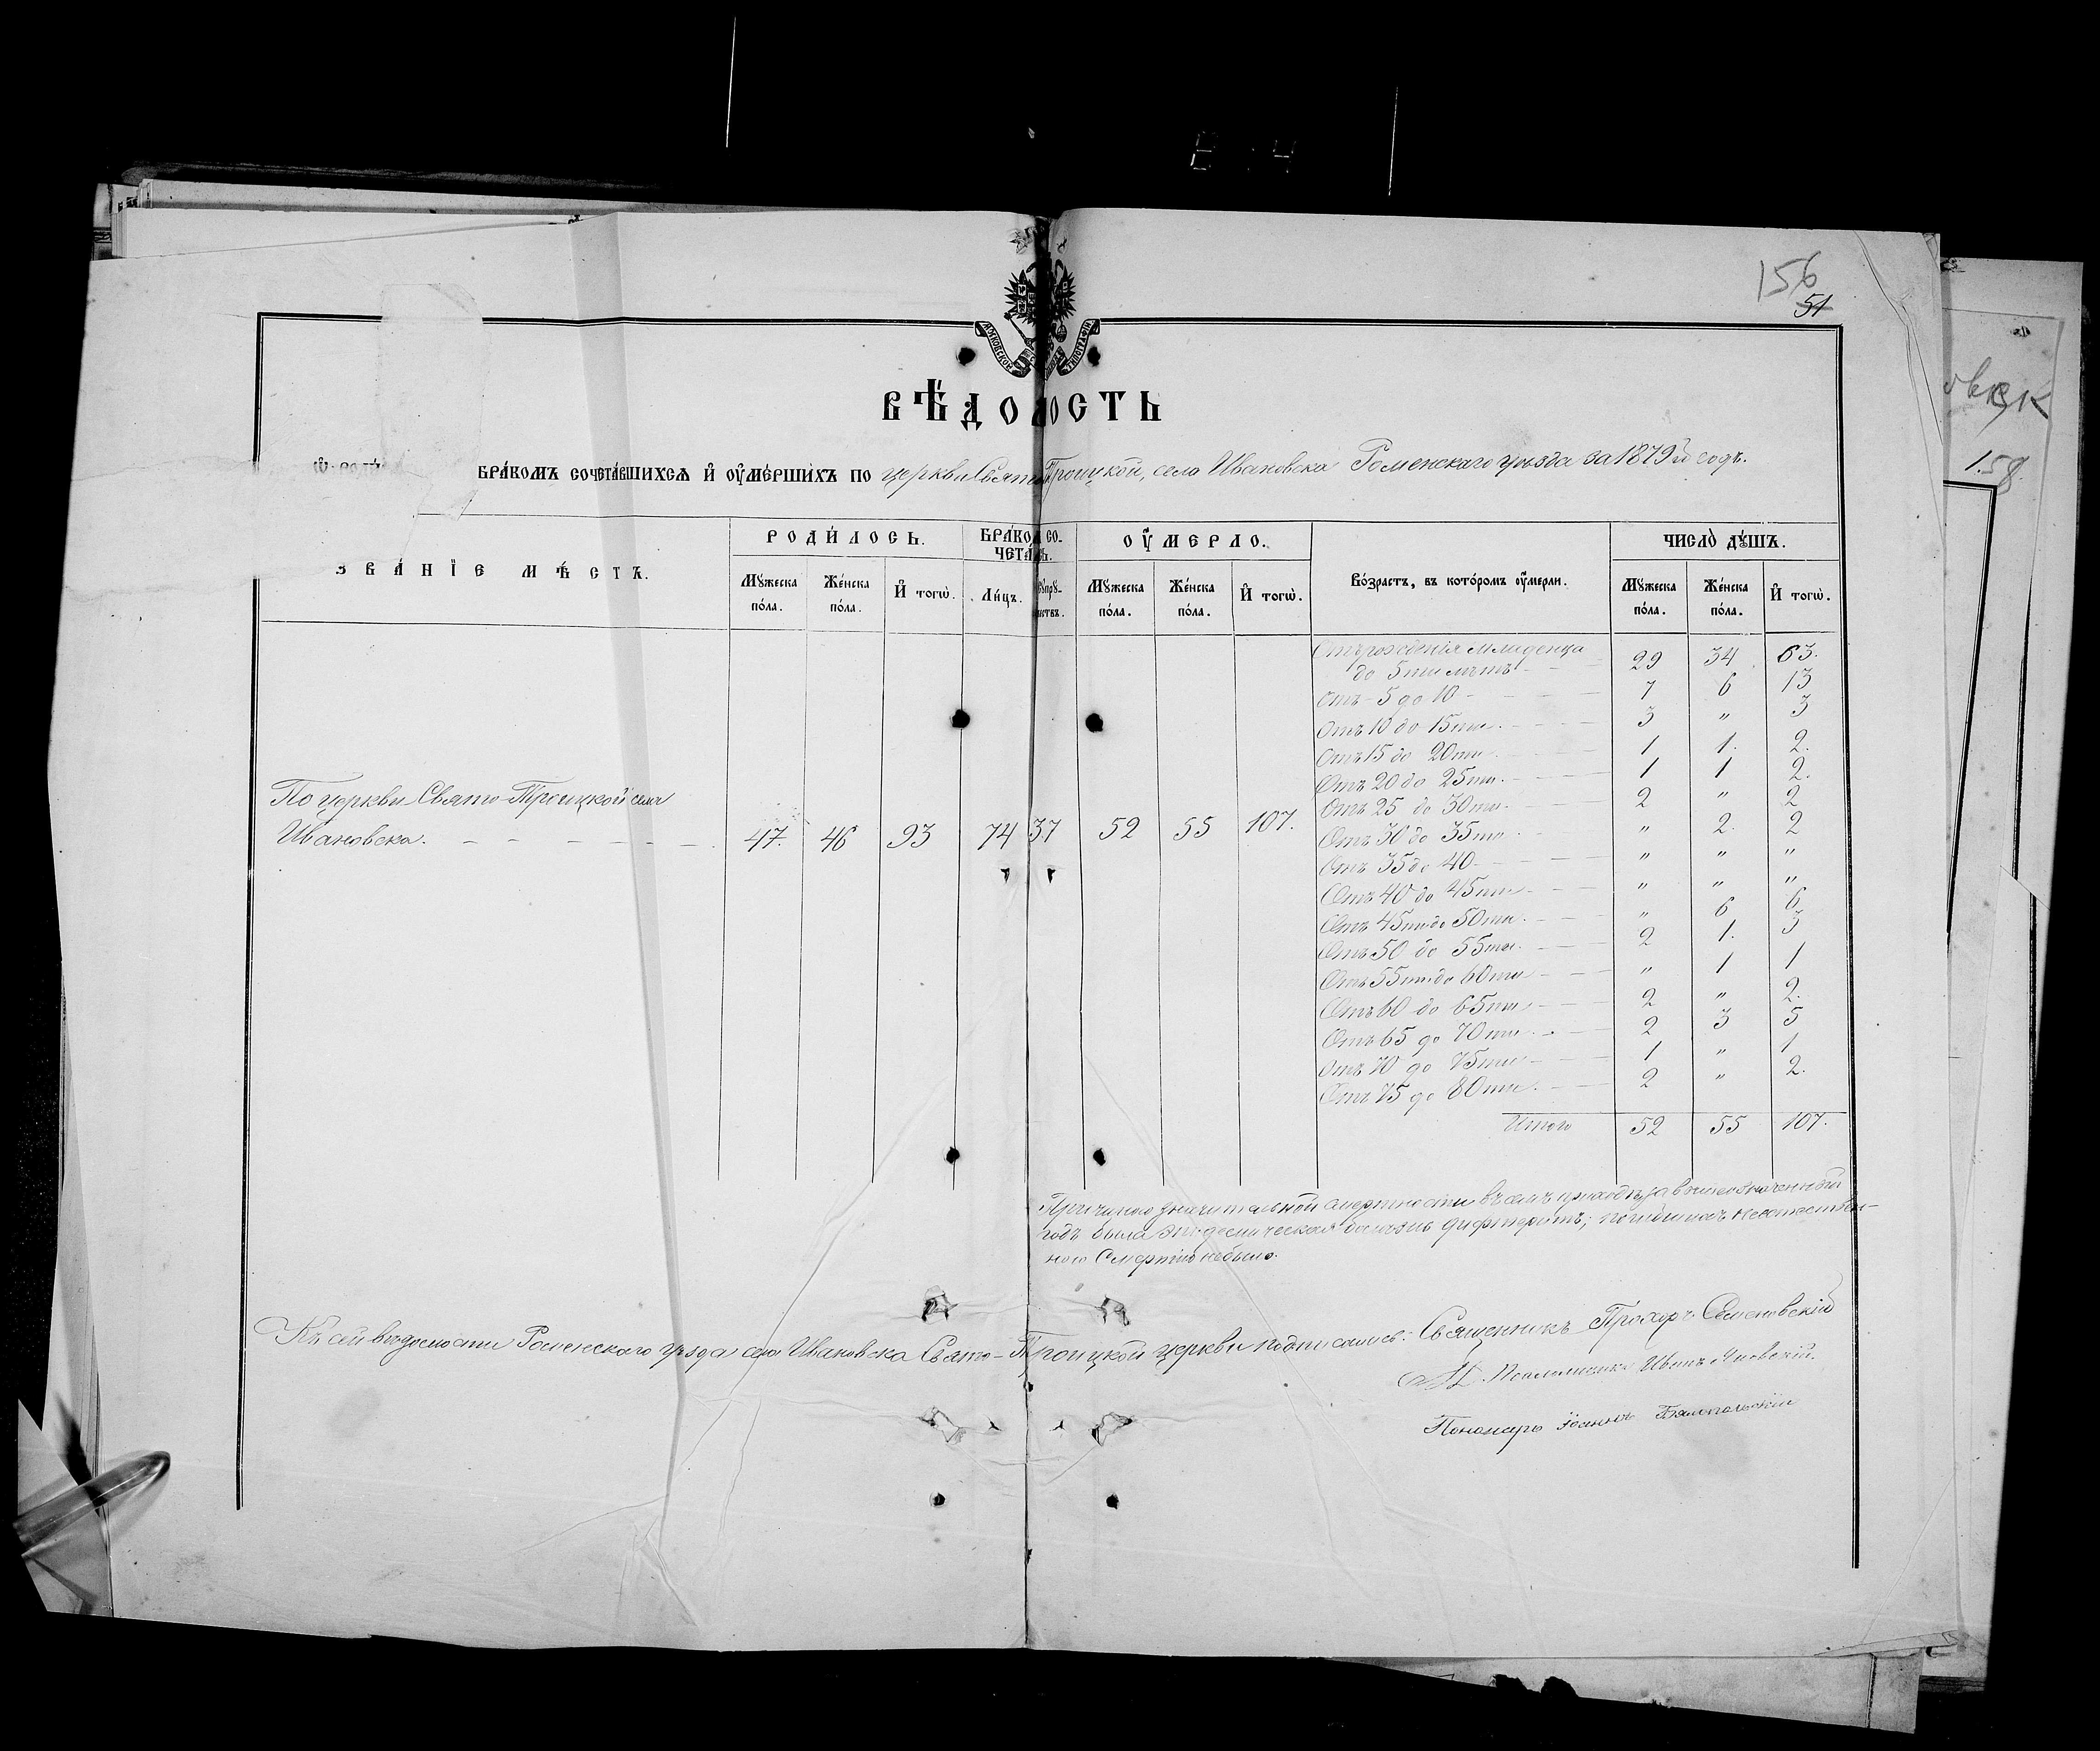 156
51
МОСКОВСКОЙ ТИПОГРАФІИ
ВѢДОМОСТЬ
БРАКОМЪ СОЧЕТАВШИХСЯ И ОУМЕРШИХЪ ПО церкви Свято Троицкой, села Ивановска Роменскаго уѣзда за 1879й годъ.
ЗВАНІЕ МѢСТЪ.
РОДИЛОСЬ.
БРАКОМ СО-
ЧЕТАЛ.
ОУМЕРЛО.
Возрастъ, въ которомъ оумерли.
ЧИСЛО ДУШЪ.
Мужеска пола.
Женска пола.
И того.
Лицъ.
Мужеска пола.
Женска пола.
И того.
Мужеска пола.
Женска пола.
И того.
По церкви Свято-Троицкой села
Ивановска. 47. 46 93 74 37 52 55 107.
Отъ рожденія младенца
до 5ти лѣтъ 29 34 63.
Отъ 5 до 10 7 6 13
Отъ 10 до 15ти 3 " 3
Отъ 15 до 20ти 1 1. 2.
Отъ 20 до 25ти 1 1 2.
Отъ 25 до 30ти 2 " 2
Отъ 30 до 35ти " 2. 2
Отъ 35 до 40 " " "
Отъ 40 до 45ти " " "
Отъ 45ти до 50ти " 6 6
Отъ 50 до 55ти 2 1. 3
Отъ 55ти до 60ти " 1 1
Отъ 60 до 65ти 2 " 2.
Отъ 65 до 70ти 2 3 5
Отъ 70 до 75ти 1 " 1
Отъ 75 до 80ти 2 " 2.
Итого 52 55 107.
Причиною значительной смертности въ семъ приходѣ за вышеозначенный
годъ была эпидемическая болѣзнь дифтеритъ; погибшихъ неестествен-
ною Смертію небыло.
Къ сей вѣдомости Роменскаго уѣзда села Ивановска Свято-Троицкой церкви подписались: Священникъ Прохоръ Семеновскій
Псаломщикъ Иванъ Яновскій.
Пономарь Іоаннъ
158